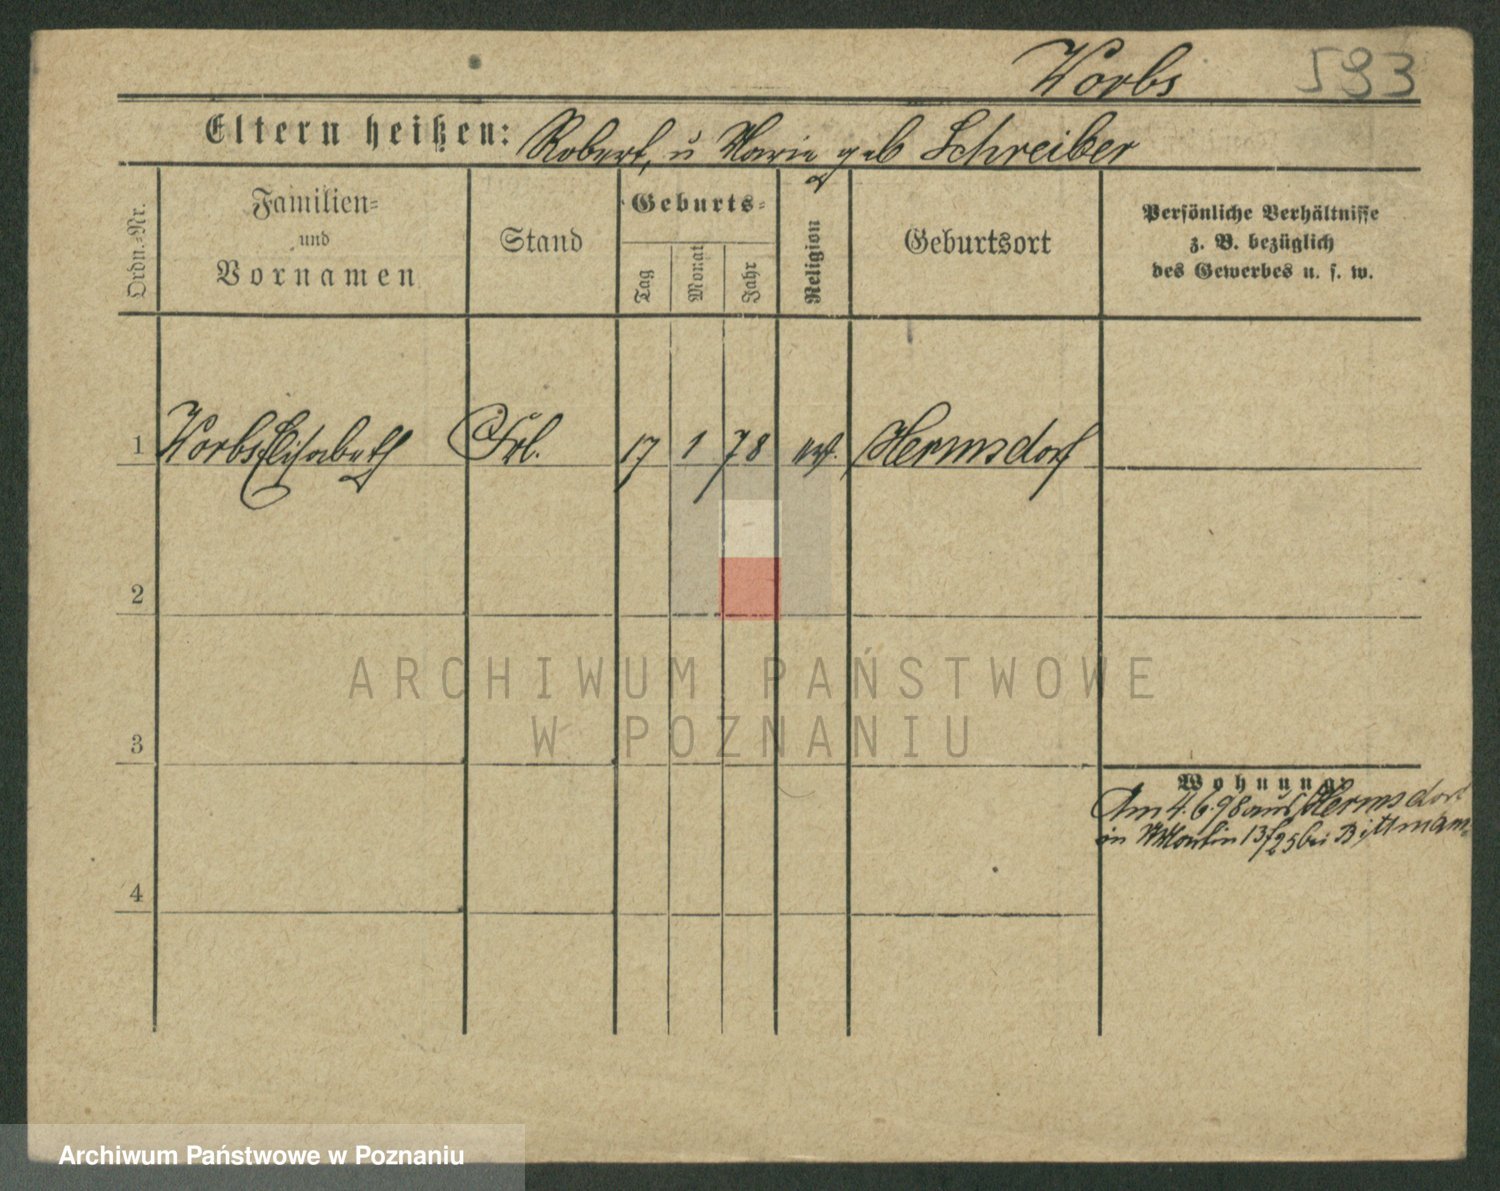 Worbs 593
Eltern heißen: Robert, u Marie geb Schreiber
Ordn.-Nr.
Familien-
und
Vornamen
Stand
Geburts-
Tag
Monat
Jahr
Religion
Geburtsort
Persönliche Verhältnisse
z. B. bezüglich
des Gewerbes u. s. w.
1 Worbs Elisabeth Frl. 17 1 78 Hermsdorf
2
3
4
Wohnung
Am 4.6.98 aus Hermsdorf
in 13/25 bei Bittmann
ARCHIWUM PAŃSTWOWE
W POZNANIU
Archiwum Państwowe w Poznaniu